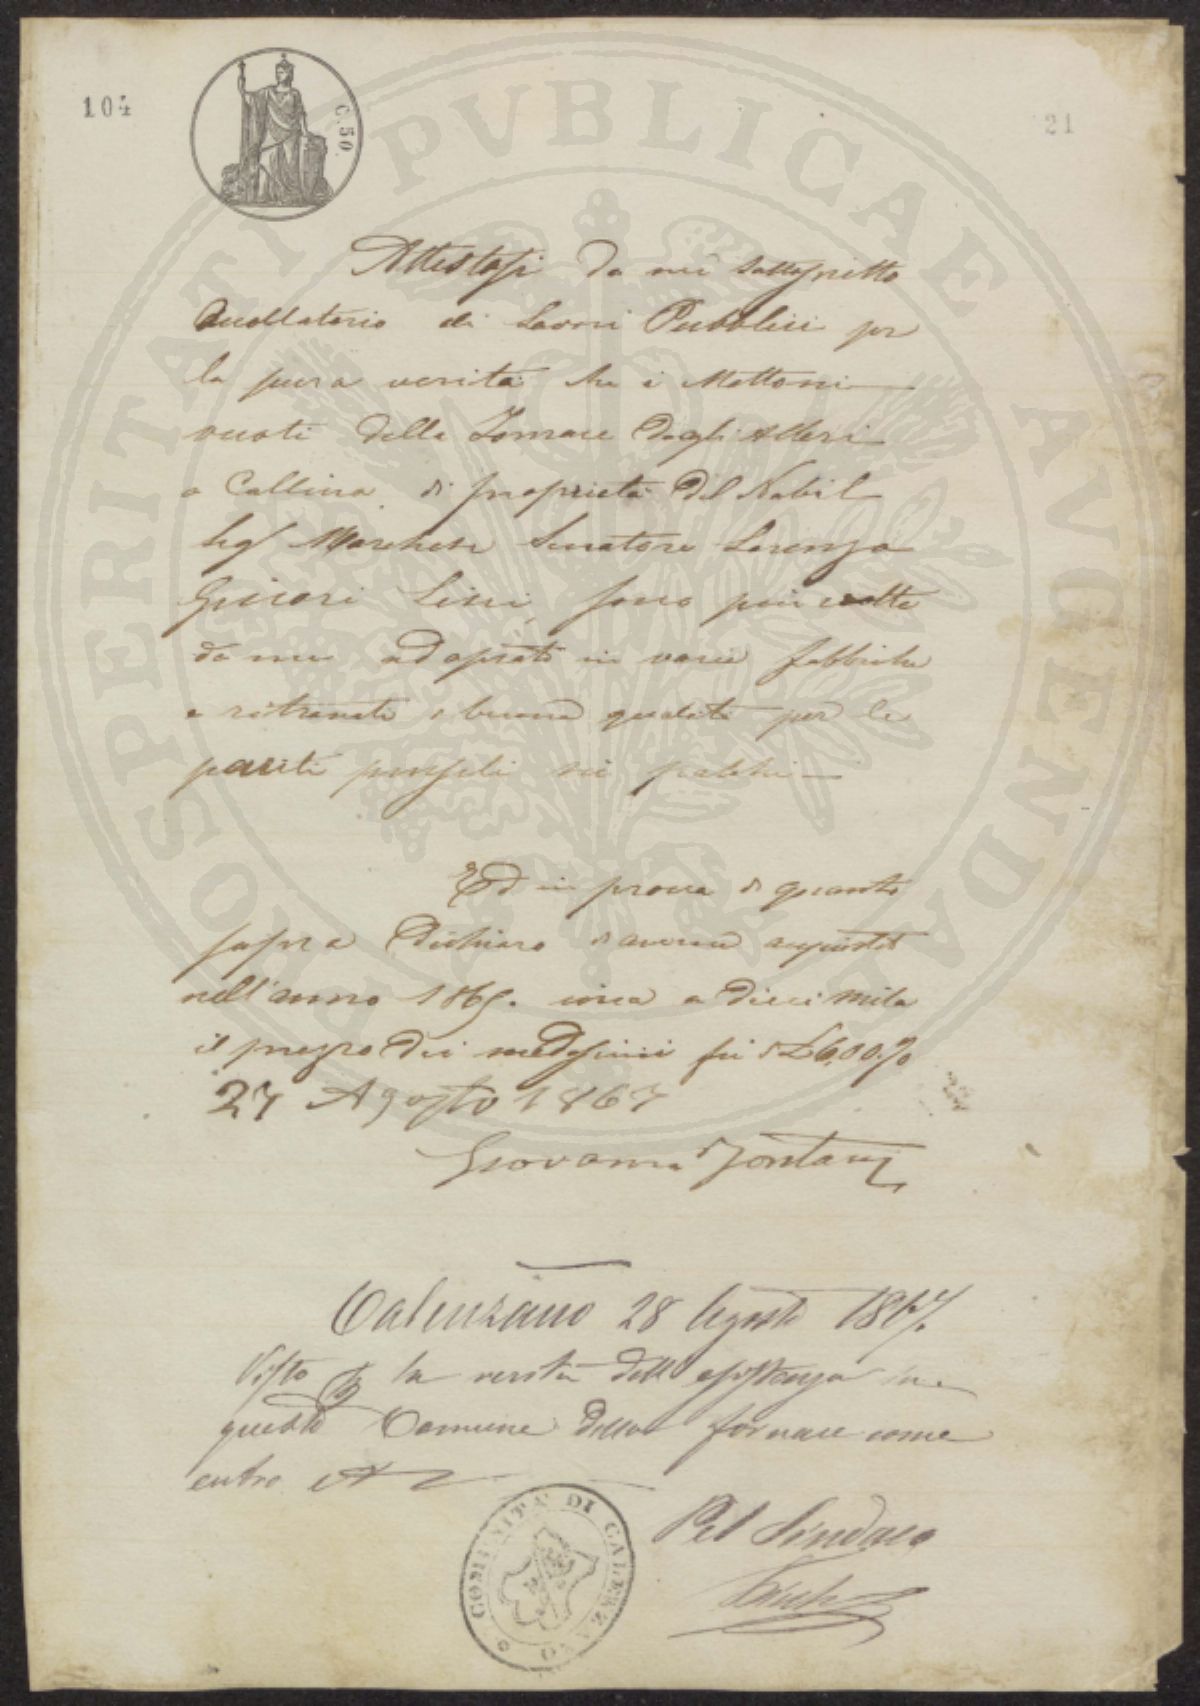 104
C. 50.
21
PROSPERITATI PVBLICAE AVGENDAE
Attestasi da me sottoscritto
Accollatario di Lavori Pubblici per
la pura verità che i Mattoni
vuoti della Fornace degli Alleri
a Collina di proprietà Del Nobil
Sig Marchese Senatore Lorenzo
Ginori Lisci, sono più volte
da me adoprati in varie fabbriche
e ritrovati di buona qualità per le
pareti in palchi
Ed in prova di quanto
sopra Dichiaro d'averne acquistati
nell'anno 1865. circa a dieci mila
il prezzo dei medesimi fu di £ 6,00 %
27 Agosto 1867
Giovanni Fontani
Calenzano 28 Agosto 1867.
Visto per la verità dell'esistenza in
questa Comune della fornace come
entro
Pel Sindaco
COMUNITA DI CALENZANO